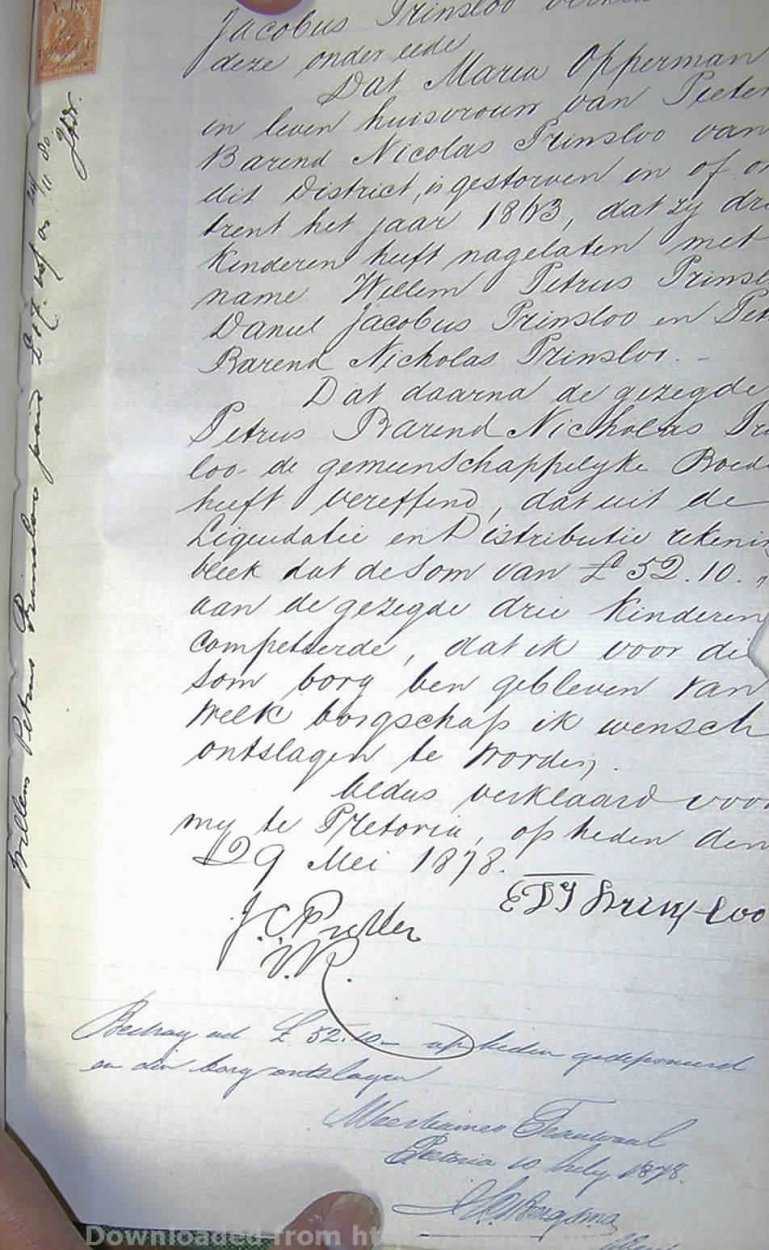 Jacobus Prinsloo
deze onder eede
Dat Maria Opperman
in leven huisvrouw van Pieter
Barend Nicolas Prinsloo van
dit District, is gestorven in of om
trent het jaar 1863, dat zy drie
kinderen heeft nagelaten met
name Willem Petrus Prinsl
Daniel Jacobus Prinsloo en Pet
Barend Nicholas Prinsloo. –
Dat daarna de gezegde
Petrus Barend Nicholas Prin
loo de gemeenschappelyke Boed
heeft vereffend, dat uit de
Liquidatie en Distributie rekenin
bleek dat de Som van £52.10. "
aan de gezegde drie kinderen
competeerde, dat ik voor die
Som borg ben gebleven van
welk borgschap ik wensch
ontslagen te worden,
Aldus verklaard voor
my te Pretoria, op heden den
29 Mei 1878.
J.C. Preller
Bedrag ad £52.10– op heden gedeponeerd
en die borg ontslagen
Weeskamer Transvaal
Pretoria 10 July 1878.
Willem Petrus Prinsloo
Downloaded from